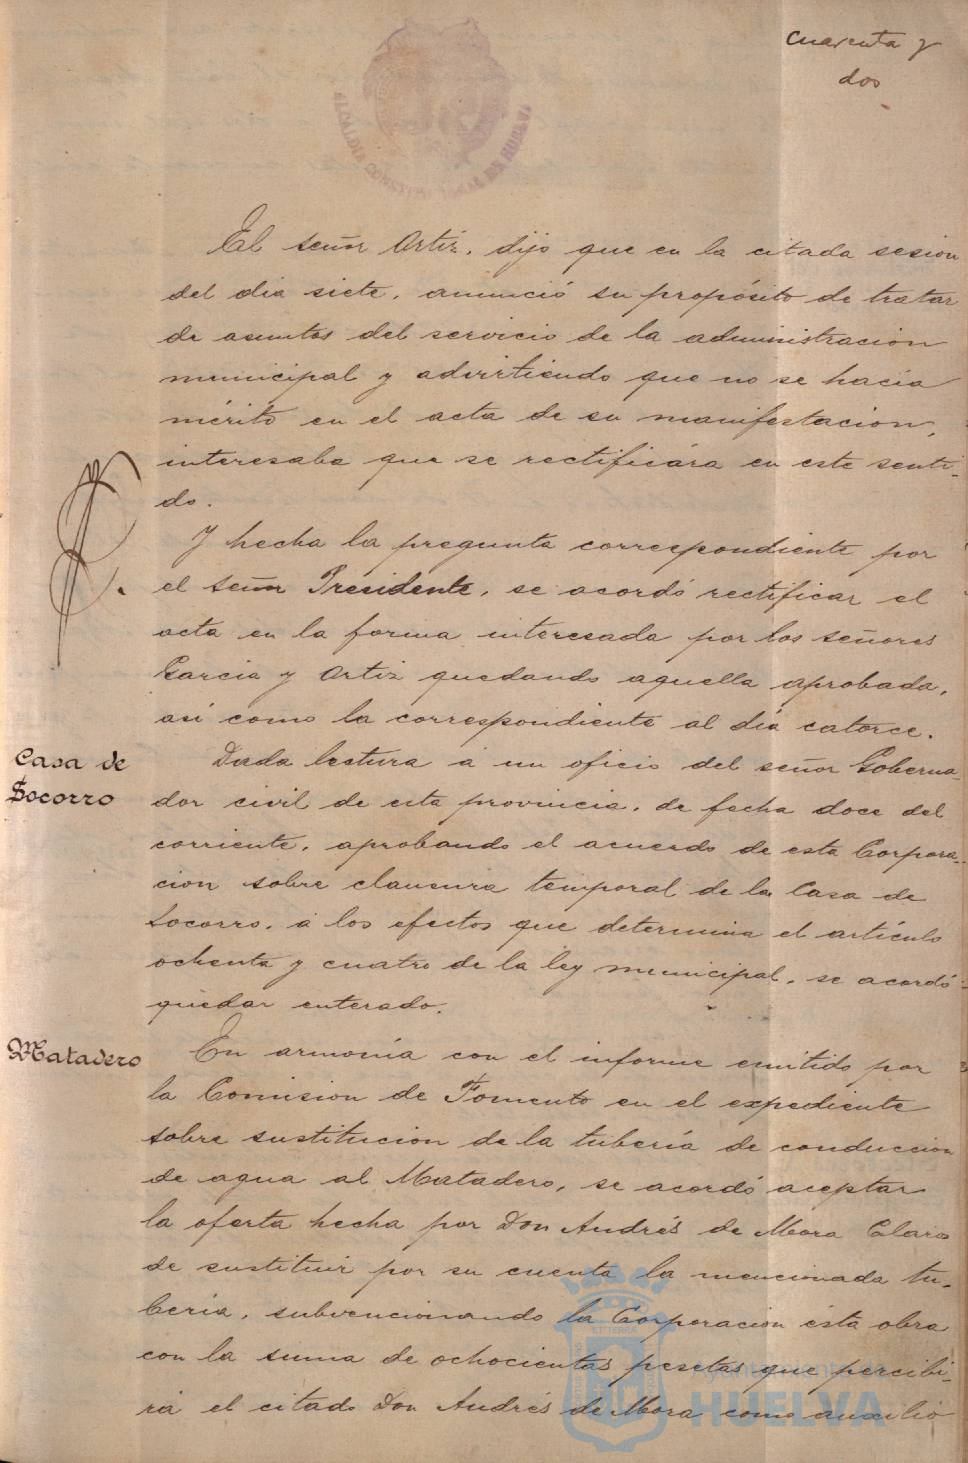 Cuarenta y
dos
ALCALDIA CONSTITUCIONAL DE HUELVA
El señor Ortiz, dijo que en la citada sesion
del dia siete, anunció su propósito de tratar
de asuntos del servicio de la administracion
municipal y advirtiendo que no se hacia
mérito en el acta de su manifestacion,
interesaba que se rectificára en este senti-
do.
Y hecha la pregunta correspondiente por
el señor Presidente, se acordó rectificar el
acta en la forma interesada por los señores
Garcia y Ortiz quedando aquella aprobada,
asi como la correspondiente al dia catorce.
Casa de
Socorro
Dada lectura á un oficio del señor Goberna-
dor civil de esta provincia, de fecha doce del
corriente, aprobando el acuerdo de esta Corpora-
cion sobre clausura temporal de la Casa de
Socorro, á los efectos que determina el artículo
ochenta y cuatro de la ley municipal, se acordó
quedar enterado.
Matadero
En armonía con el informe emitido por
la Comision de Fomento en el expediente
sobre sustitucion de la tubería de conduccion
de agua al Matadero, se acordó aceptar
la oferta hecha por Don Andrés de Mora Claros
de sustituir por su cuenta la mencionada tu-
beria, subvencionando la Corporacion ésta obra
con la suma de ochocientas pesetas que percibi-
rá el citado Don Andrés de Mora como auxilio
Ayuntamiento de
HUELVA